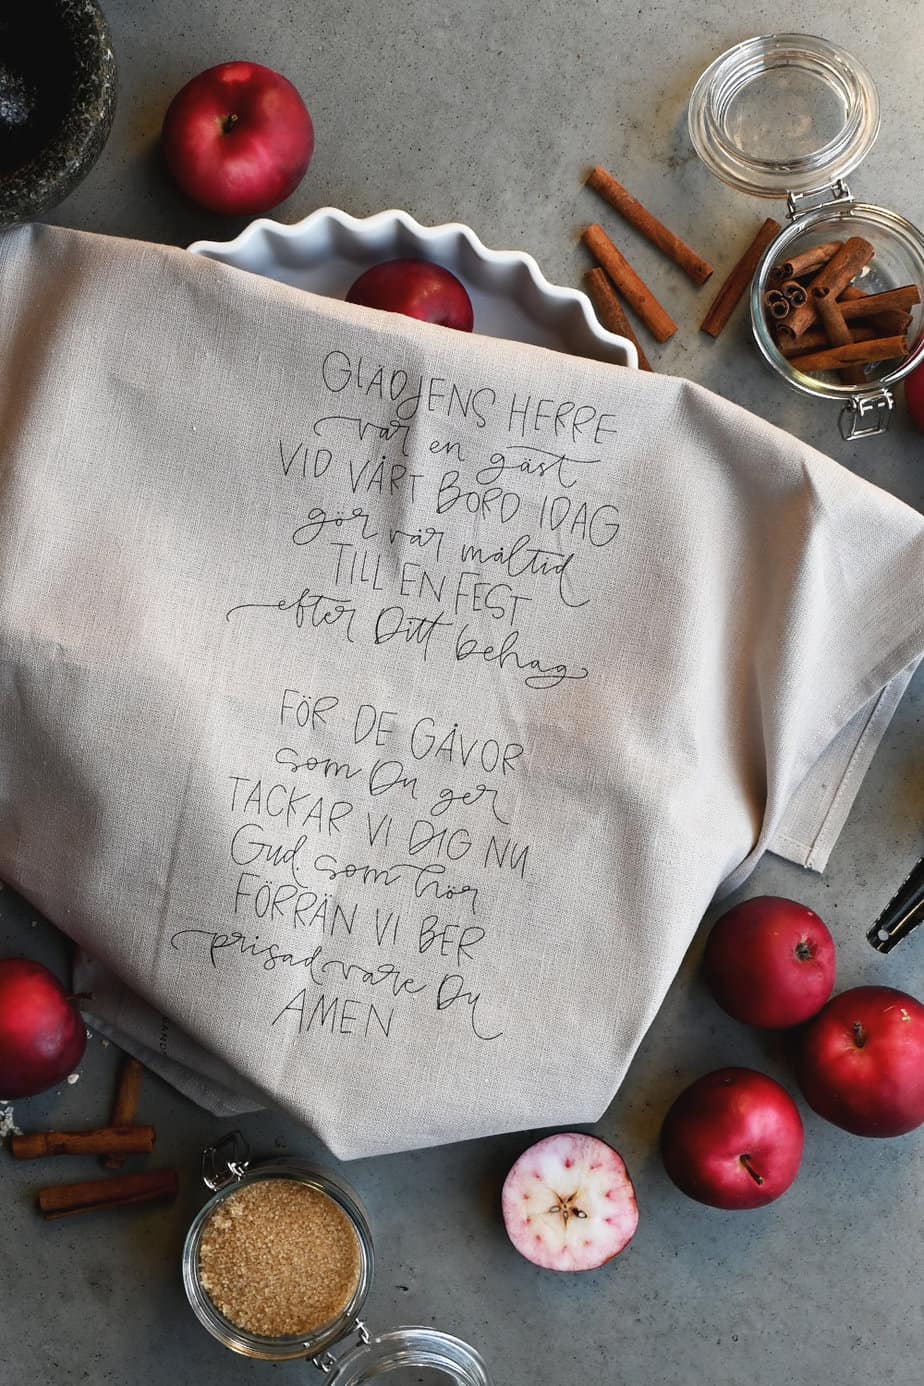 GLÄDJENS HERRE
var en gäst
VID VÅRT BORD IDAG
gör vår måltid
TILL EN FEST
efter Ditt behag
FÖR DE GÅVOR
som Du ger
TACKAR VI DIG NU
Gud, som hör
FÖRRÄN VI BER
prisad vare Du
AMEN